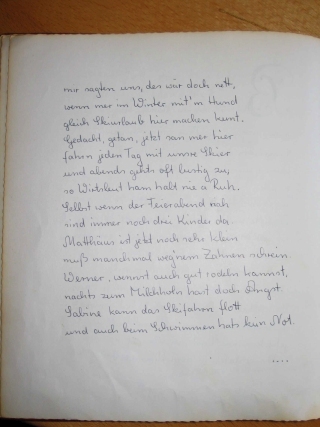 mr sagten uns, des wär doch nett,
wenn mer im Winter mit'm Hund
gleich Skiurlaub hier machen kunnt.
Gedacht, getan, jetzt san mer hier
fahrn jeden Tag mit unsre Skier
und abends gehts oft lustig zu,
so Wirtsleut ham halt nie a Ruh.
Selbst wenn der Feierabend nah
sind immer noch drei Kinder da.
Matthäus ist jetzt noch sehr klein
muß manchmal weg'nem Zahnen schrein.
Werner, wennst auch gut rodeln kannst,
nachts zum Milchholn hast doch Angst.
Sabine kann das Skifahrn flott
und auch beim Schwimmen hats kein Not.
....